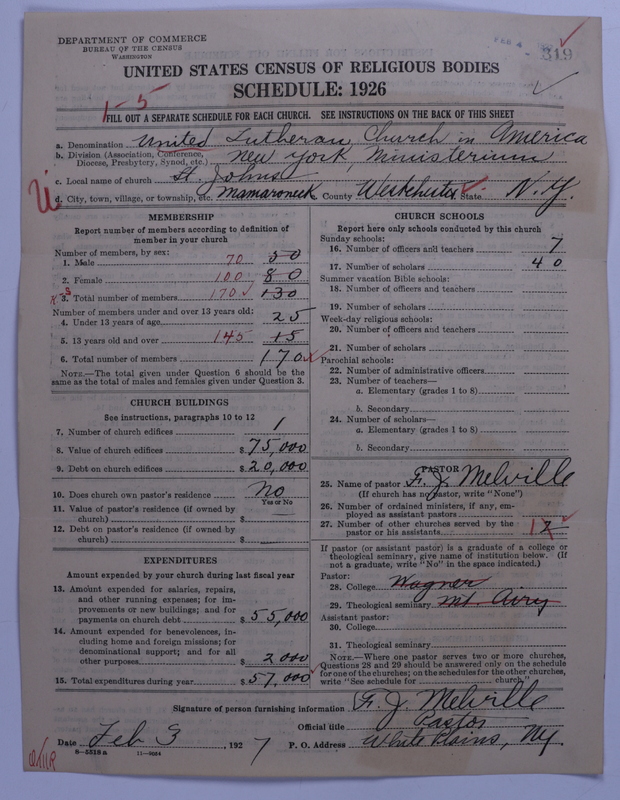 DEPARTMENT OF COMMERCE
BUREAU OF THE CENSUS
WASHINGTON
FEB 4
319
UNITED STATES CENSUS OF RELIGIOUS BODIES
SCHEDULE: 1926
1-5
FILL OUT A SEPARATE SCHEDULE FOR EACH CHURCH. SEE INSTRUCTIONS ON THE BACK OF THIS SHEET
a. Denomination United Lutheran Church in America
b. Division (Association, Conference, Diocese, Presbytery, Synod, etc.) New York Ministerium
c. Local name of church St. Johns
d. City, town, village, or township, etc. Mamaroneck County Westchester State N.Y.
MEMBERSHIP
Report number of members according to definition of
member in your church
Number of members, by sex:
1. Male 70 50
2. Female 100 80
3. Total number of members 170 130
Number of members under and over 13 years old:
4. Under 13 years of age 25
5. 13 years old and over 145 15
6. Total number of members 170
NOTE.—The total given under Question 6 should be
same as the total of males and females given under Question 3.
CHURCH BUILDINGS
See instructions, paragraphs 10 to 12
7. Number of church edifices 1
8. Value of church edifices $75,000
9. Debt on church edifices $20,000
10. Does church own pastor's residence No
Yes or No
11. Value of pastor's residence (if owned by
church) $
12. Debt on pastor's residence (if owned by
church) $
EXPENDITURES
Amount expended by your church during last fiscal year
13. Amount expended for salaries, repairs,
and other running expenses; for im-
provements or new buildings; and for
payments on church debt $55,000
14. Amount expended for benevolences, in-
cluding home and foreign missions; for
denominational support; and for all
other purposes $2000
15. Total expenditures during year $57,000
CHURCH SCHOOLS
Report here only schools conducted by this church
Sunday schools:
16. Number of officers and teachers 7
17. Number of scholars 40
Summer vacation Bible schools:
18. Number of officers and teachers
19. Number of scholars
Week-day religious schools:
20. Number of officers and teachers
21. Number of scholars
Parochial schools:
22. Number of administrative officers
23. Number of teachers—
a. Elementary (grades 1 to 8)
b. Secondary
24. Number of scholars—
a. Elementary (grades 1 to 8)
b. Secondary
PASTOR
25. Name of pastor F. J. Melville
(If church has no pastor, write "None")
26. Number of ordained ministers, if any, em-
ployed as assistant pastors
27. Number of other churches served by the
pastor or his assistants 1 2
If pastor (or assistant pastor) is a graduate of a college or
theological seminary, give name of institution below. (If
not a graduate, write "No" in the space indicated.)
Pastor:
28. College Wagner
29. Theological seminary Mt. Airy
Assistant pastor:
30. College
31. Theological seminary
NOTE.—Where one pastor serves two or more churches,
Questions 28 and 29 should be answered only on the schedule
for one of the churches; on the schedules for the other churches,
write "See schedule for church."
Signature of person furnishing information F. J. Melville
Official title Pastor
Date Feb 3, 1927 P. O. Address White Plains, NY.
8-5519a 11-9064